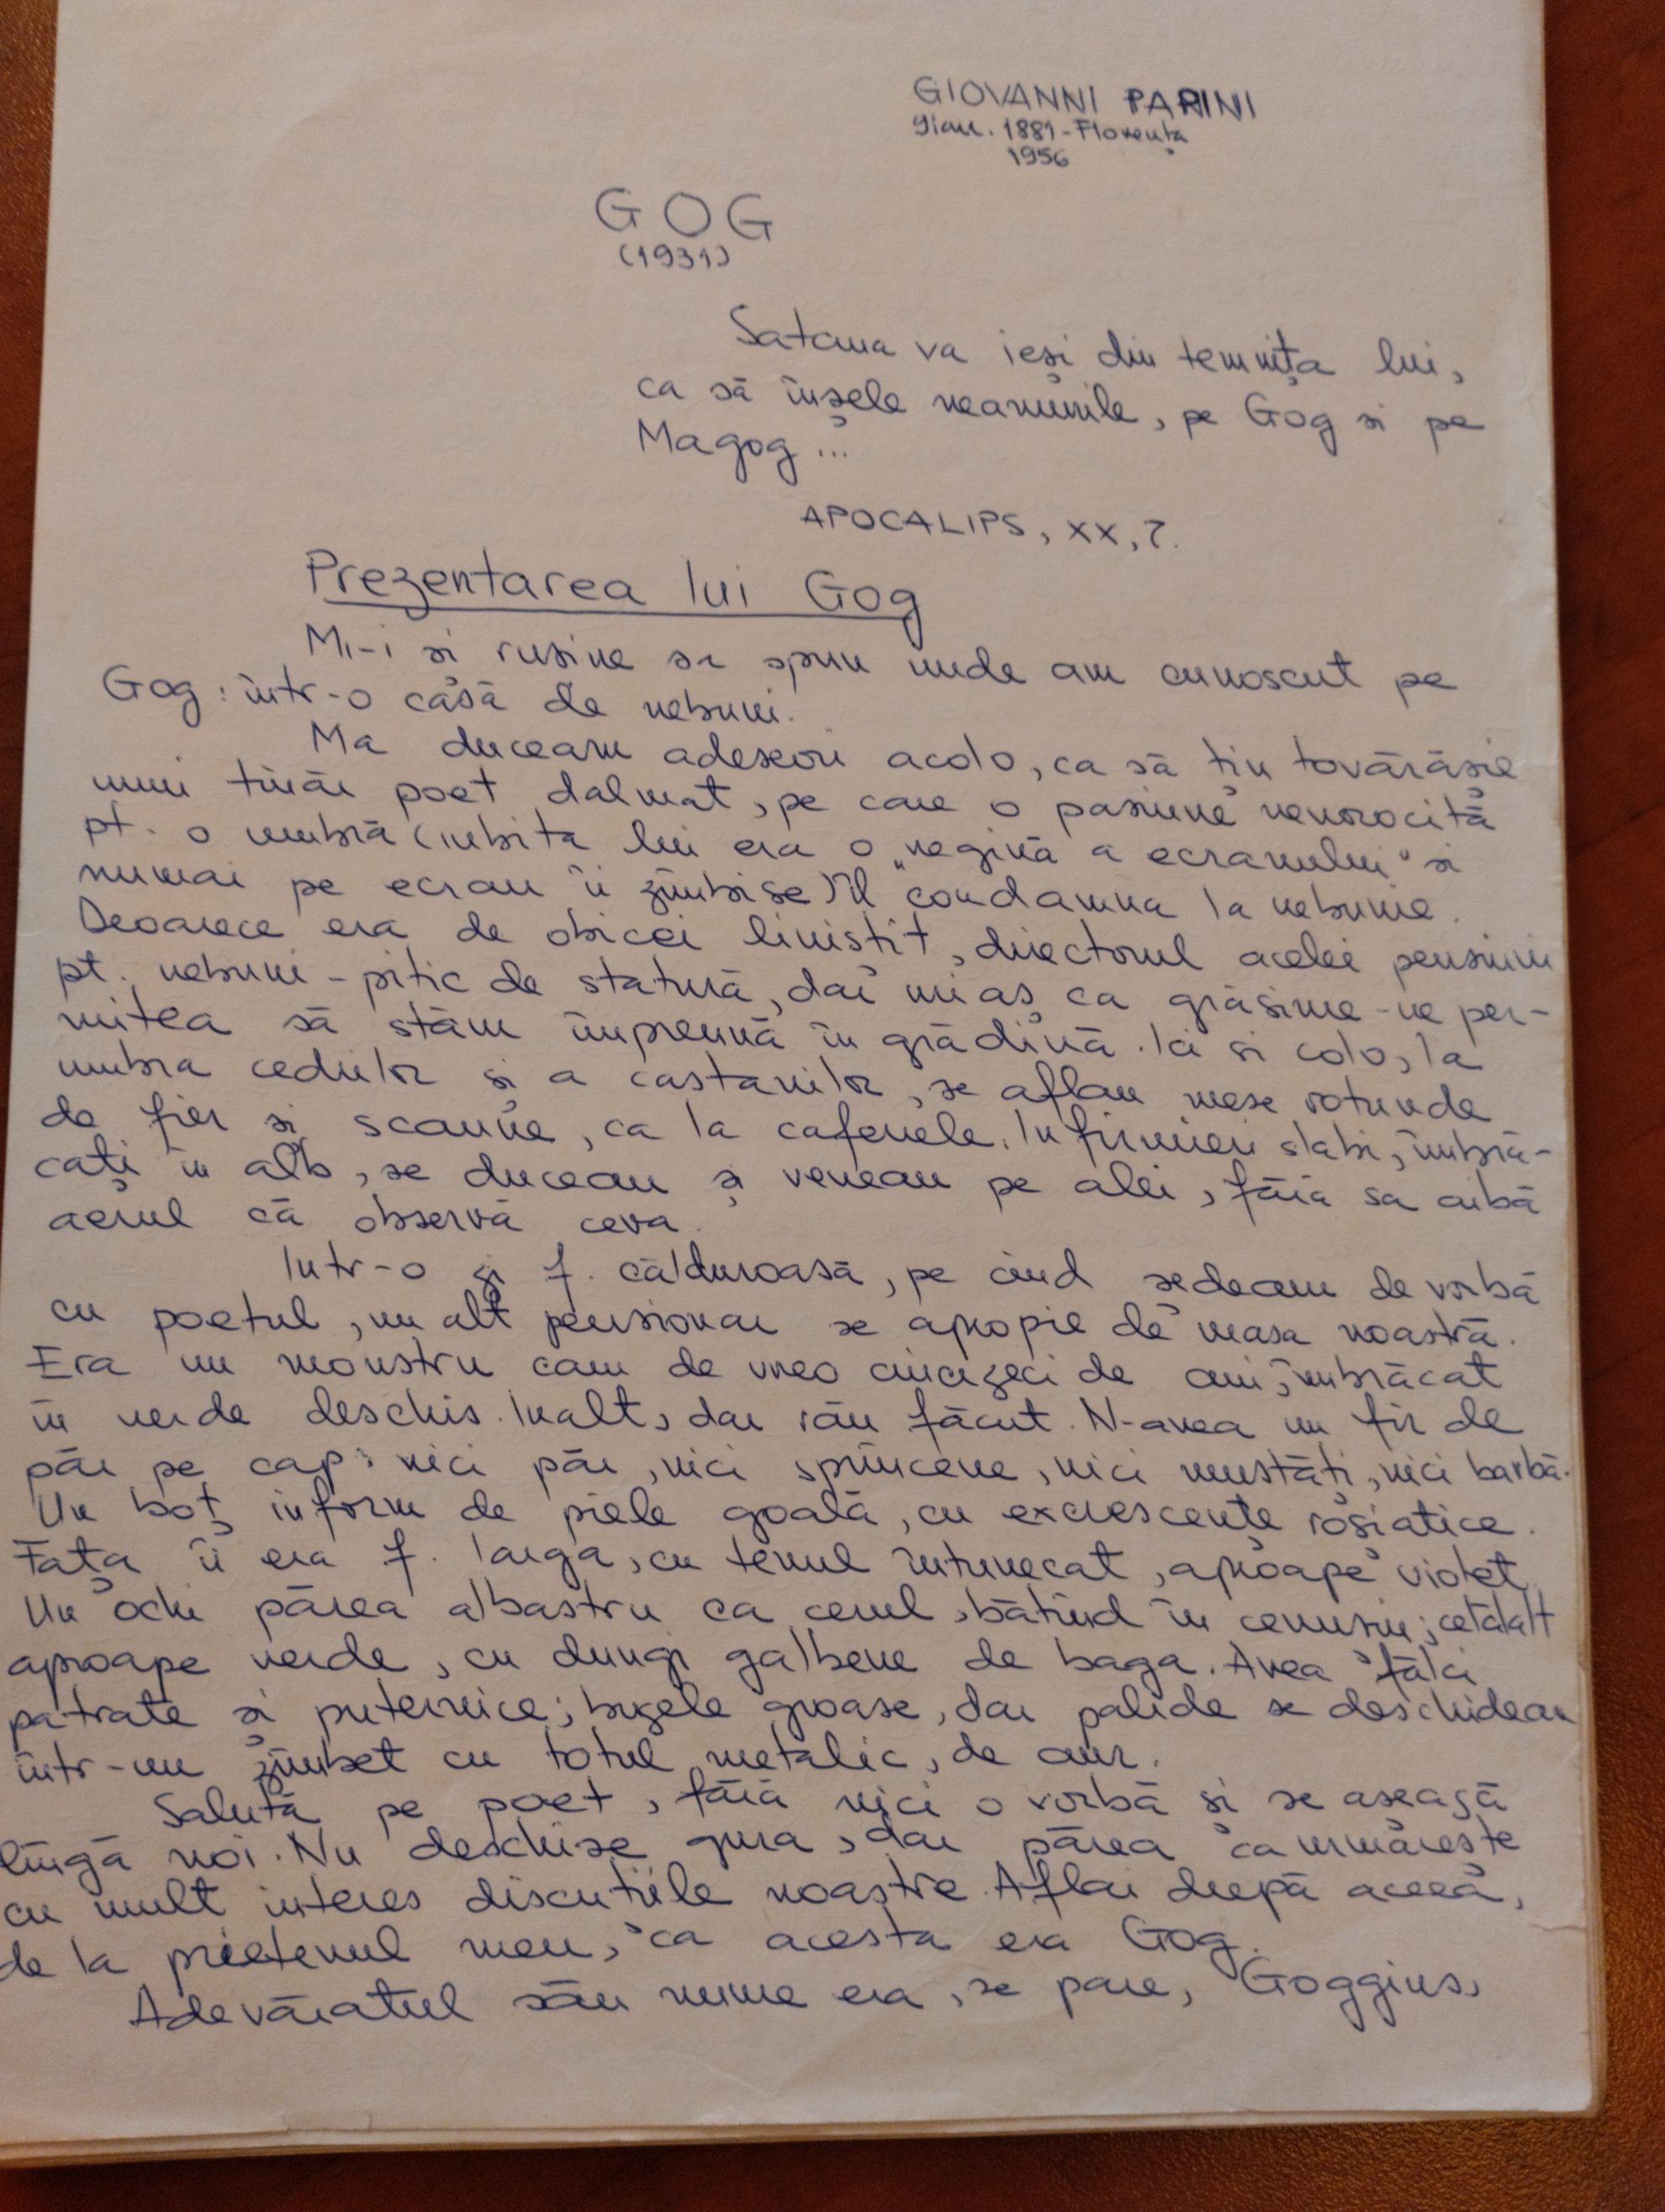 GIOVANNI PAPINI
9 ian. 1881 - Florența
1956
GOG
(1931)
Satana va ieși din temnița lui,
ca să înșele neamurile, pe Gog si pe
Magog ...
APOCALIPS, XX, 7.
Prezentarea lui Gog
Mi-i si rusine sa spun unde am cunoscut pe
Gog: într-o casă de nebuni.
Ma duceam adeseori acolo, ca să țin tovărășie
unui tînăr poet dalmat, pe care o pasiune nenorocită
pt. o umbră (iubita lui era o „regină a ecranului" si
numai pe ecran îi zîmbise) îl condamna la nebunie.
Deoarece era de obicei linistit, directorul acelei pensiuni
pt. nebuni - pitic de statură, dar urias ca grăsime - ne per-
mitea să stăm împreună în grădină. Ici si colo, la
umbra cedrilor și a castanilor, se aflau mese rotunde
de fier si scaune, ca la cafenele. Infirmieri slabi, îmbră-
cați în alb, se duceau și veneau pe alei, fără sa aibă
aerul că observă ceva.
Intr-o zi f. călduroasă, pe cînd ședeam de vorbă
cu poetul, un alt pensionar se apropie de masa noastră.
Era un monstru cam de vreo cincizeci de ani, îmbrăcat
în verde deschis. Inalt, dar rău făcut. N-avea un fir de
păr pe cap: nici păr, nici sprîncene, nici mustăți, nici barbă.
Un boț inform de piele goală, cu excrescențe roșiatice.
Fața îi era f. larga, cu tenul întunecat, aproape violet.
Un ochi părea albastru ca cerul, bătînd în cenusiu; celălalt
aproape verde, cu dungi galbene de baga. Avea fălci
patrate si puternice; buzele groase, dar palide se deschideau
intr-un zîmbet cu totul metalic, de aur.
Salută pe poet, fără nici o vorbă și se asează
lîngă noi. Nu deschise gura, dar părea ca urmărește
cu mult interes discutiile noastre. Aflai după aceea,
de la prietenul meu, ca acesta era Gog.
Adevăratul său nume era, se pare, Goggins,